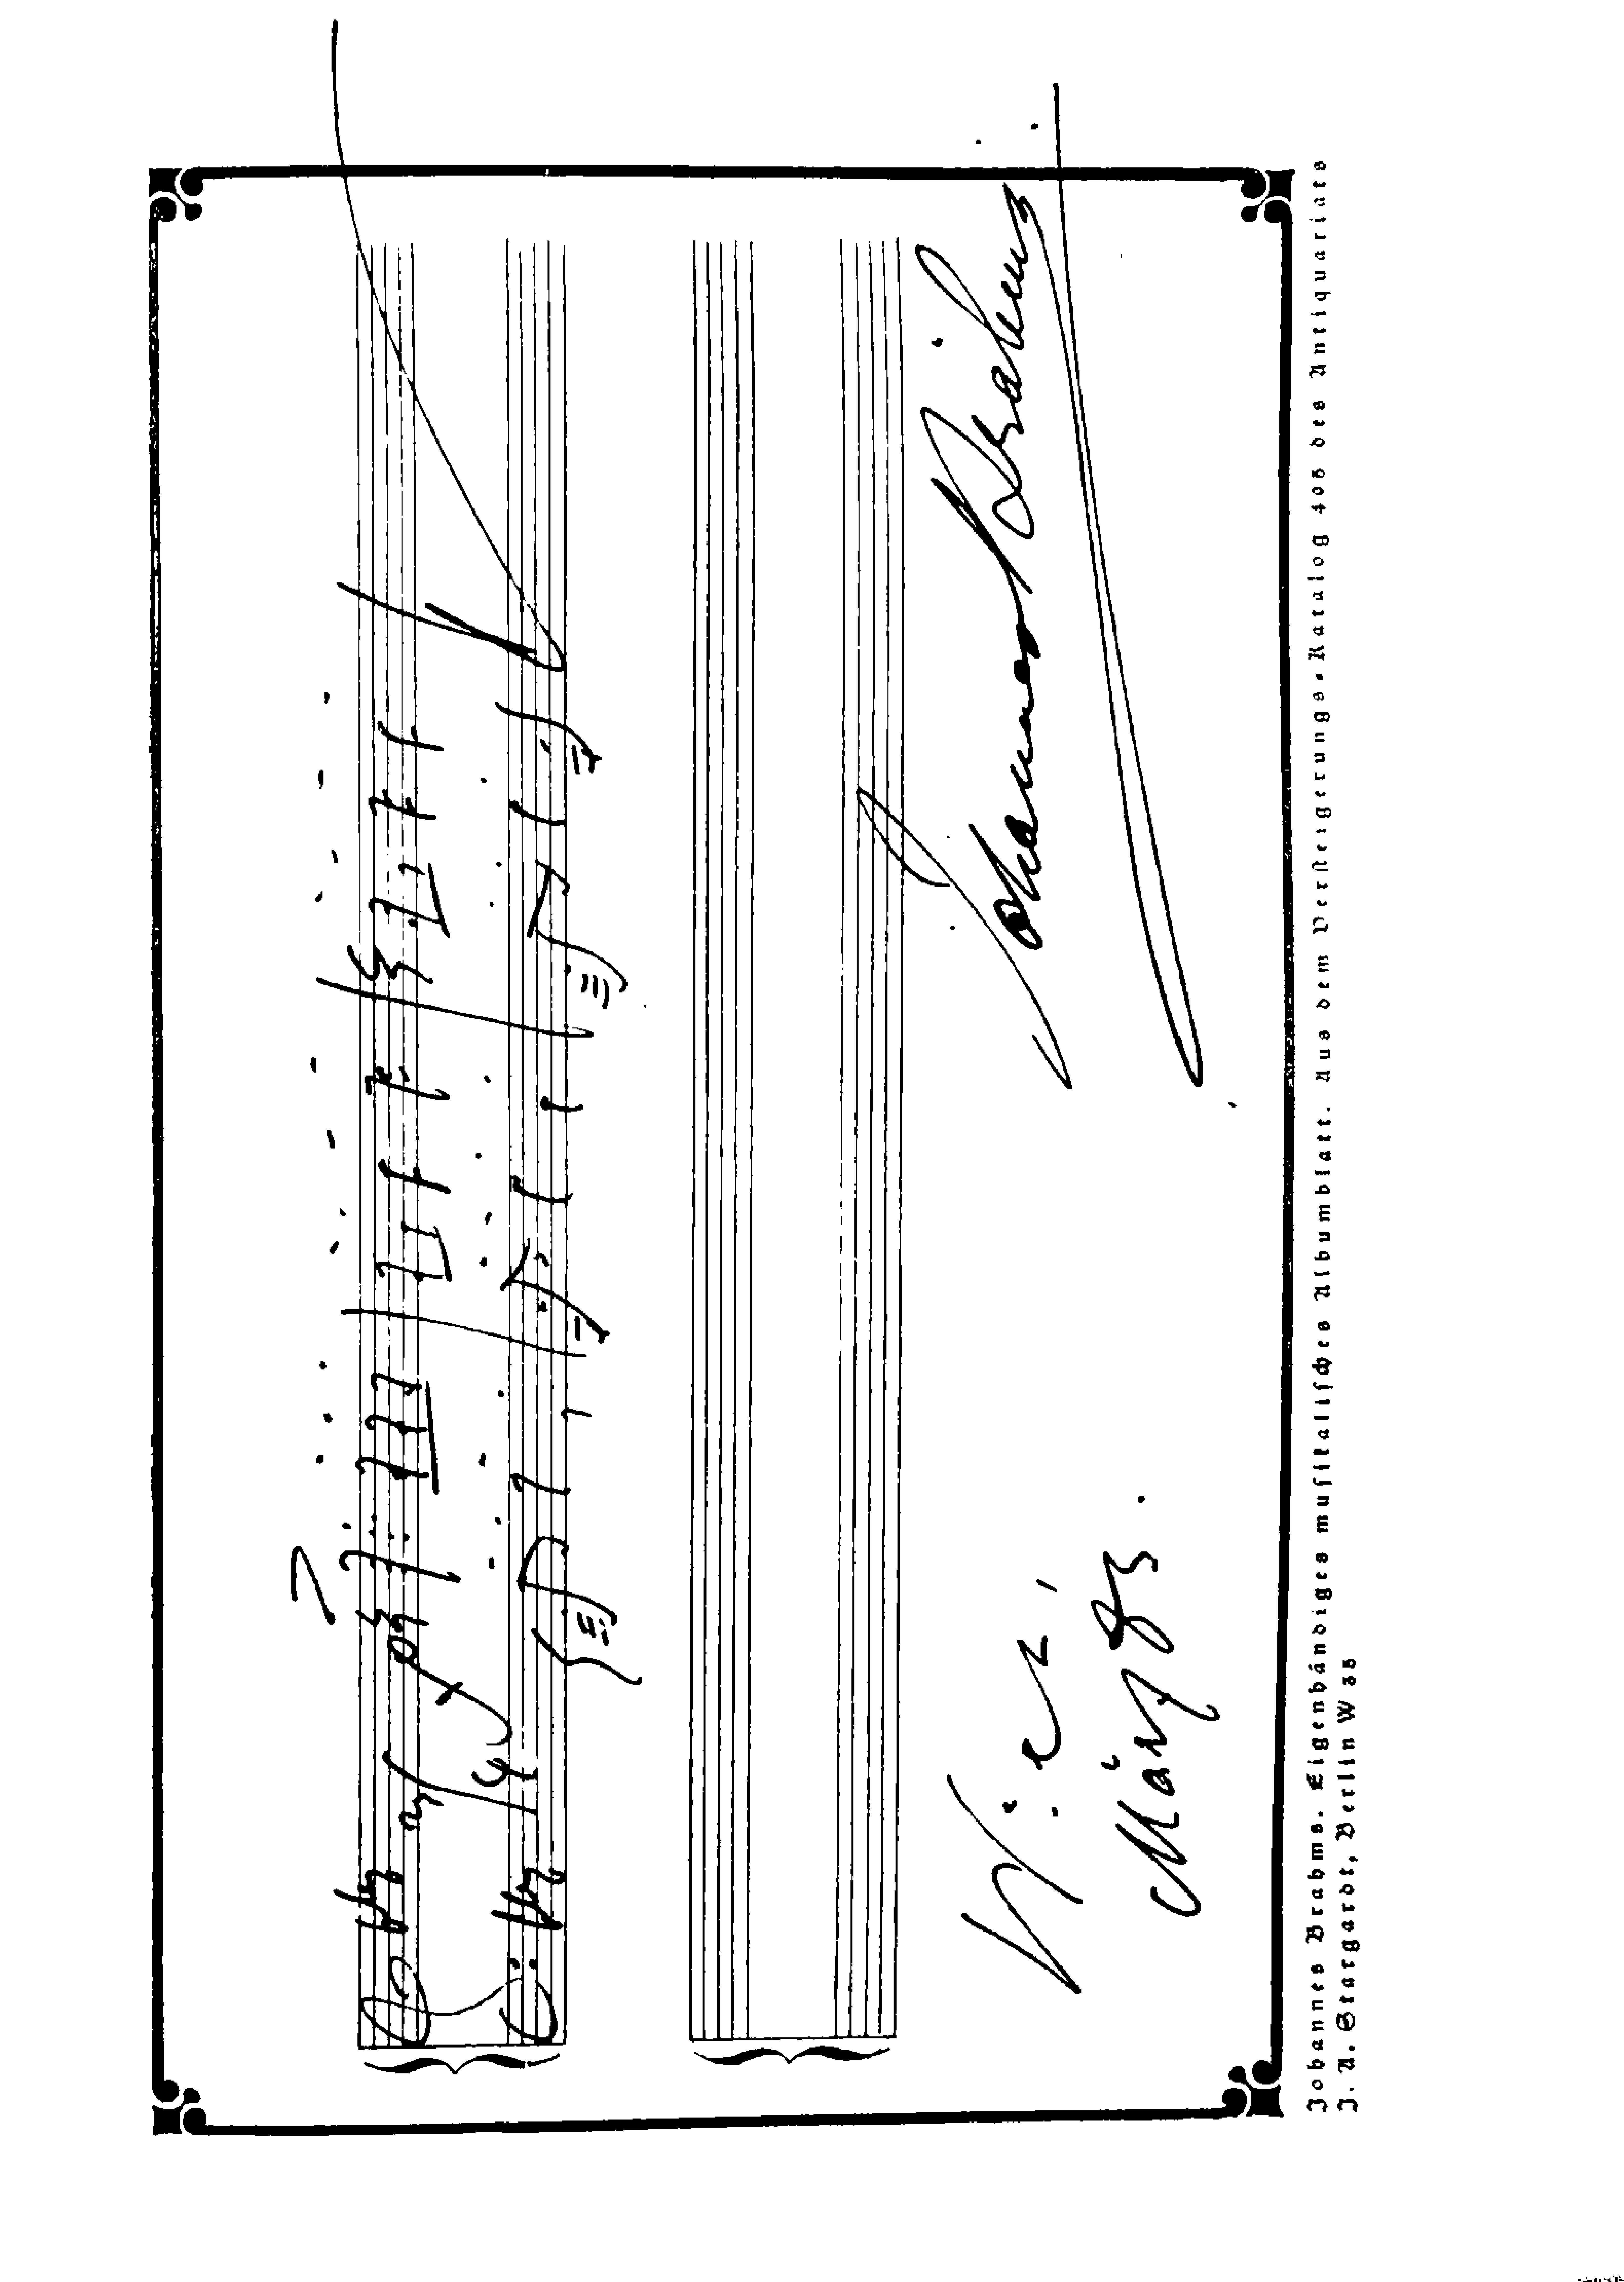 Johannes Brahms
Wien,
März 93.
Johannes Brahms. Eigenhändiges musikalisches Albumblatt. Aus dem Versteigerungs-Katalog 408 des Antiquariats
J. A. Stargardt, Berlin W 35